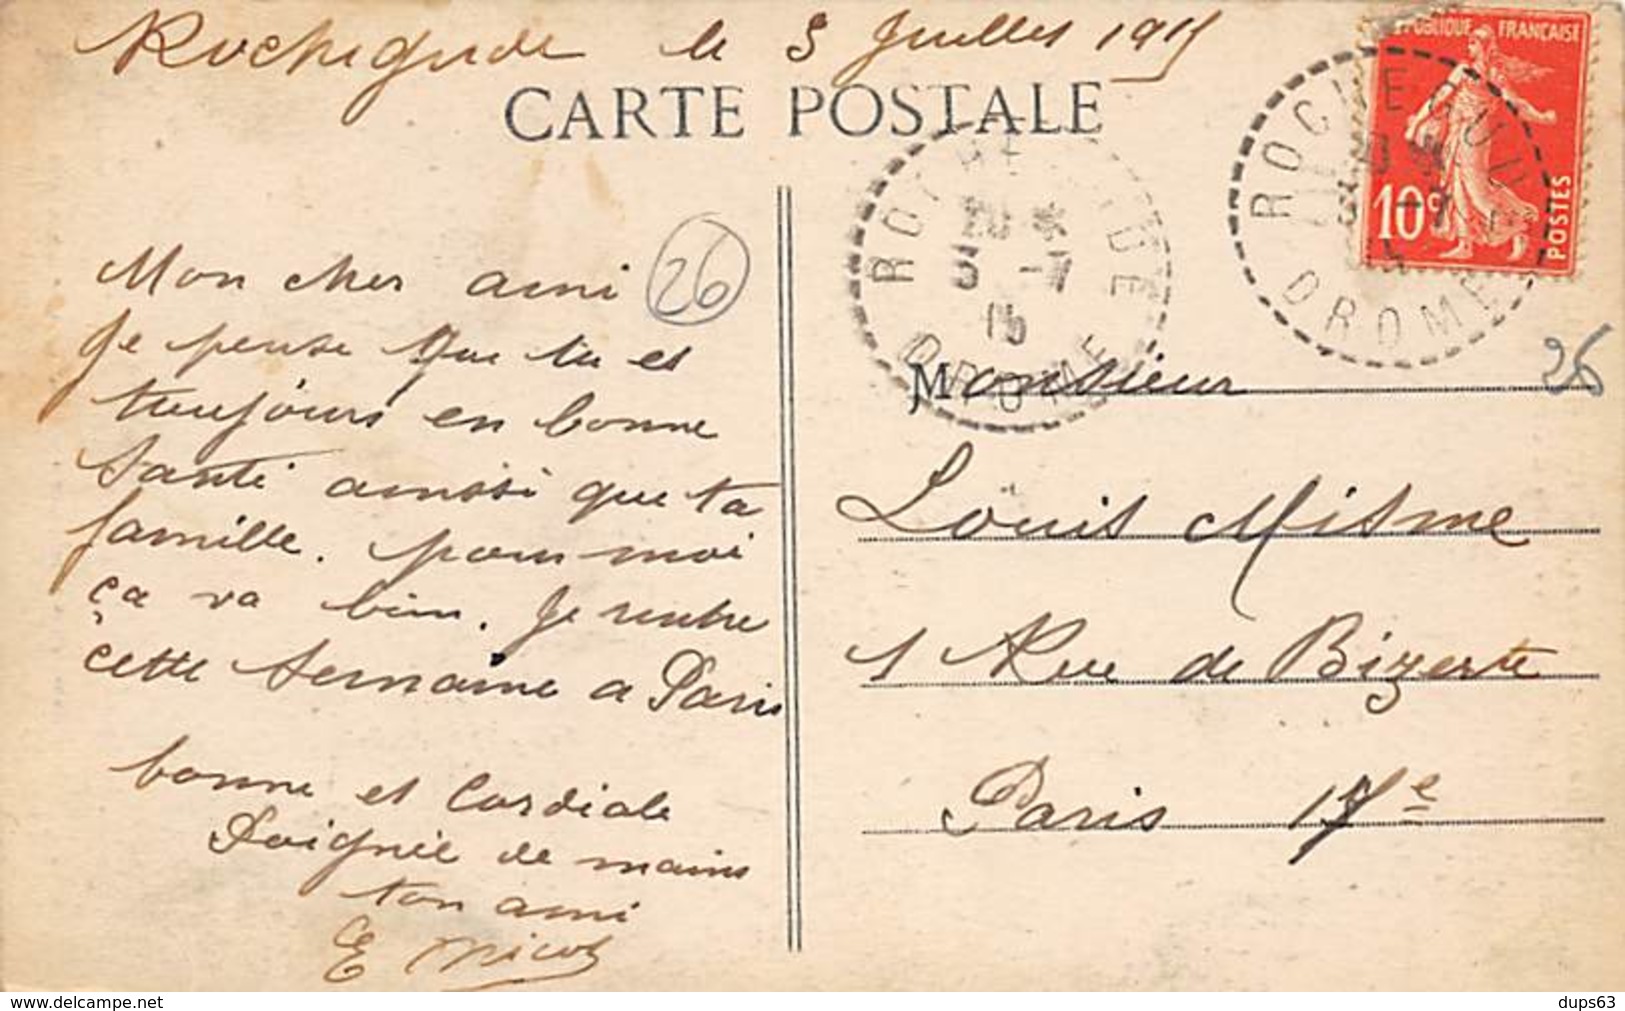 Rochegude le 5 Juillet 1915
CARTE POSTALE
RÉPUBLIQUE FRANÇAISE
10c
POSTES
ROCHEGUDE
DROME
ROCHEGUDE
5 -7
15
DROME
26
Mon cher ami
Je pense que tu es
toujours en bonne
santé ainssi que ta
famille. pour moi
ça va bien. Je rentre
cette semaine a Paris
bonne et Cordiale
Poignée de mains
ton ami
E Nicol
Monsieur
26
Louis Misme
1 Rue de Bizerte
Paris 17e
www.delcampe.net
dups63